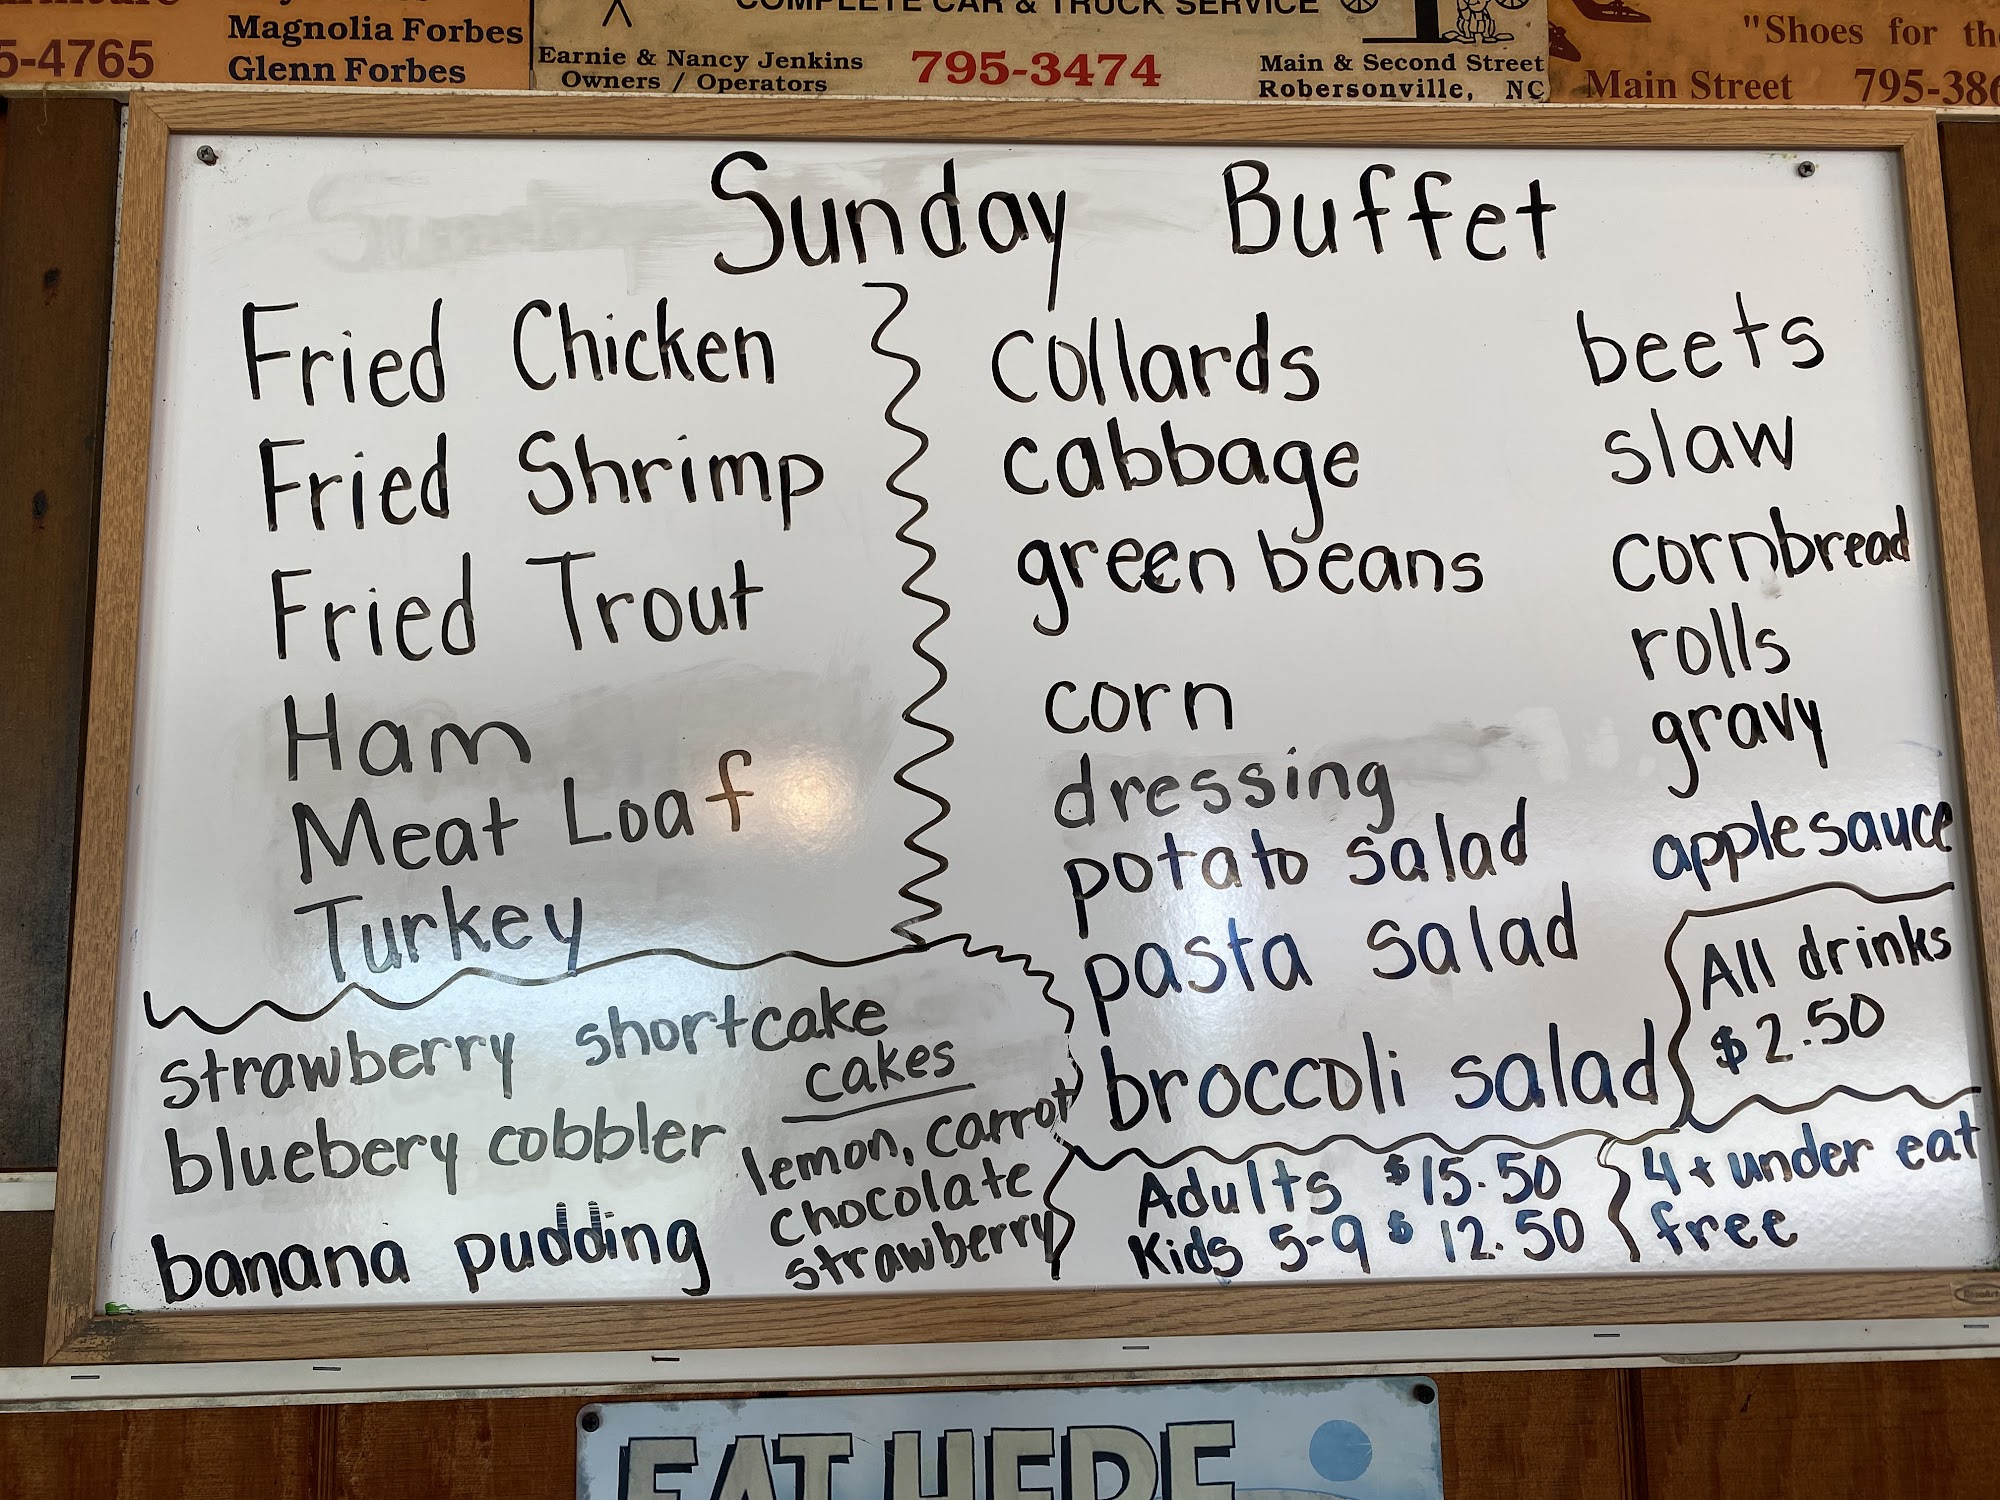 Magnolia Forbes
5-4765
Glenn Forbes
COMPLETE CAR & TRUCK SERVICE
Earnie & Nancy Jenkins
Owners / Operators
795-3474
Main & Second Street
Robersonville, NC
"Shoes for
Main Street 795-386
Sunday Buffet
Fried Chicken
Fried Shrimp
Fried Trout
Ham
Meat Loaf
Turkey
collards
cabbage
green beans
corn
dressing
potato salad
pasta salad
broccoli salad
beets
slaw
cornbread
rolls
gravy
applesauce
All drinks
$2.50
strawberry shortcake
bluebery cobbler
banana pudding
cakes
lemon, carrot
chocolate
strawberry
Adults $15.50
Kids 5-9 $12.50
4 + under eat
free
EAT HERE